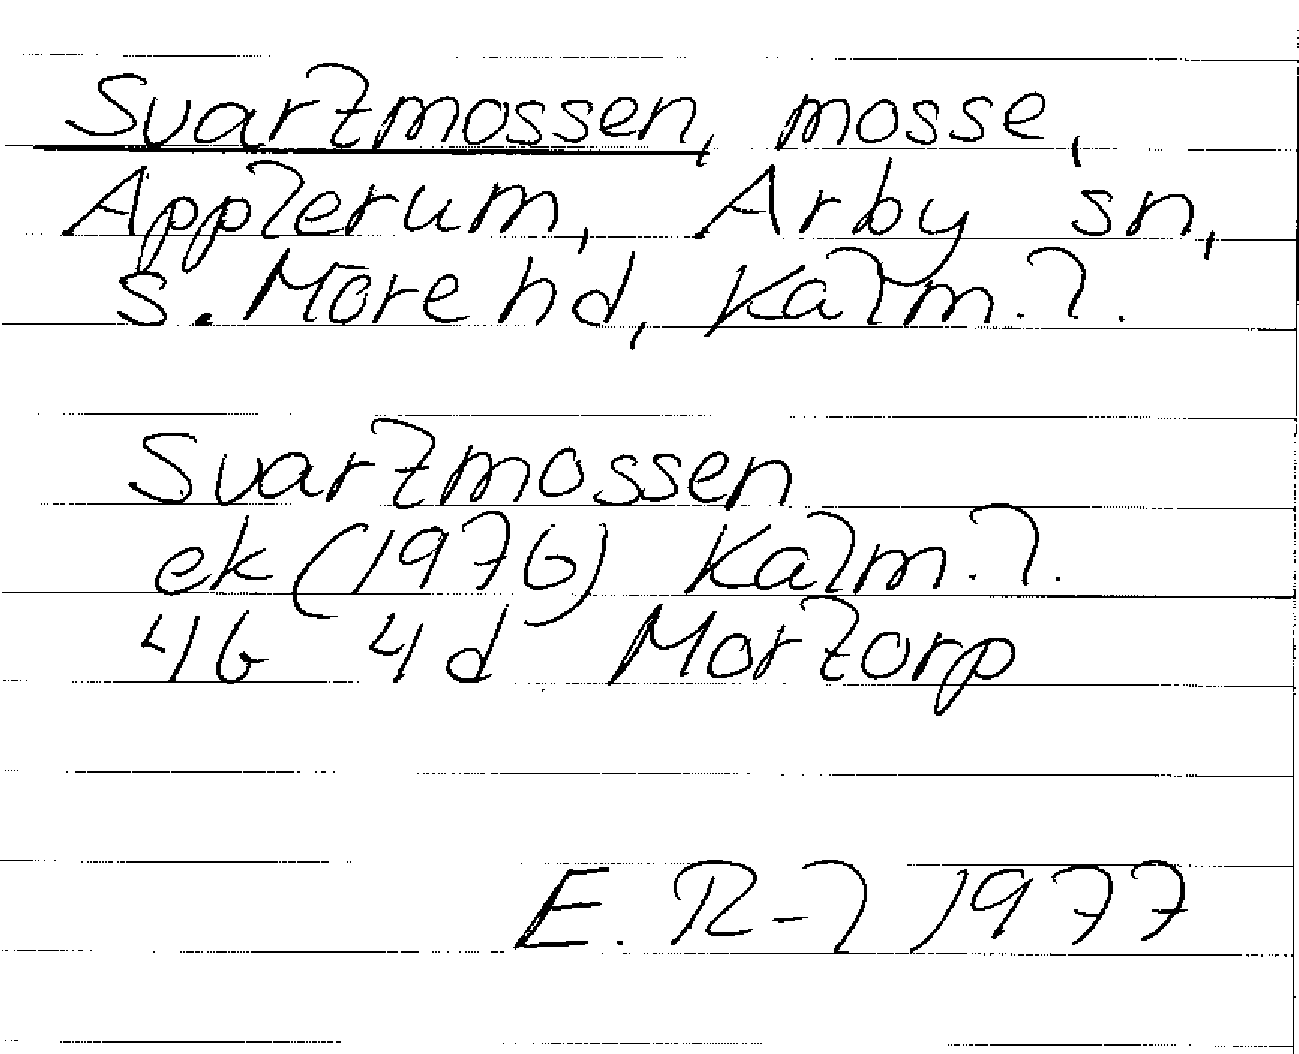 Svartmossen, mosse,
Applerum, Arby sn,
S. Möre hd, Kalm. l.
Svartmossen
ek (1976) Kalm. l.
4G 4d Mortorp
E. R-l 1977